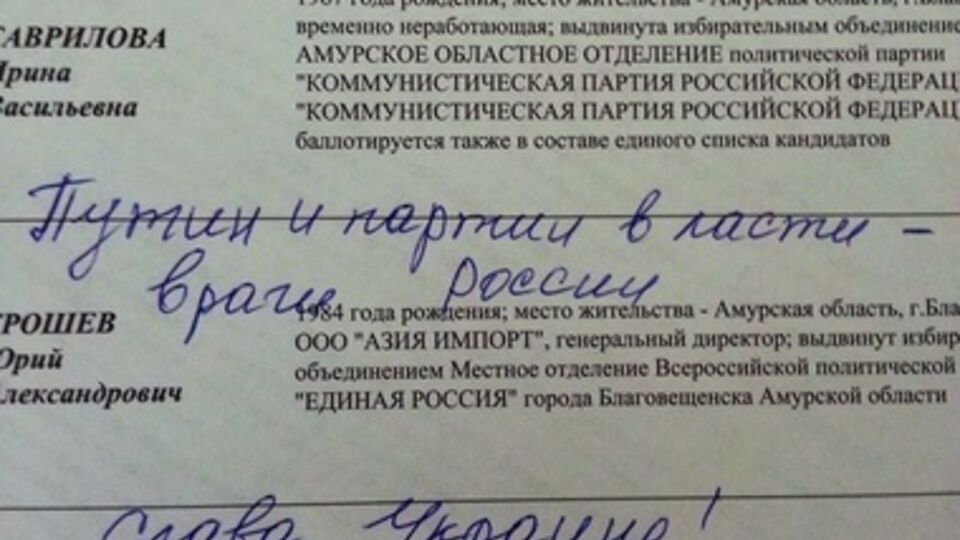 1967 года рождения; место жительства - Амурская область, г.Благ
ГАВРИЛОВА временно неработающая; выдвинута избирательным объединение
Ирина АМУРСКОЕ ОБЛАСТНОЕ ОТДЕЛЕНИЕ политической партии
Васильевна "КОММУНИСТИЧЕСКАЯ ПАРТИЯ РОССИЙСКОЙ ФЕДЕРАЦ
"КОММУНИСТИЧЕСКАЯ ПАРТИЯ РОССИЙСКОЙ ФЕДЕРАЦ
баллотируется также в составе единого списка кандидатов
Путин и партии власти -
враги России
ЕРОШЕВ 1984 года рождения; место жительства - Амурская область, г.Бла
Юрий ООО "АЗИЯ ИМПОРТ", генеральный директор; выдвинут избир
Александрович объединением Местное отделение Всероссийской политической
"ЕДИНАЯ РОССИЯ" города Благовещенска Амурской области
Слава Украине!